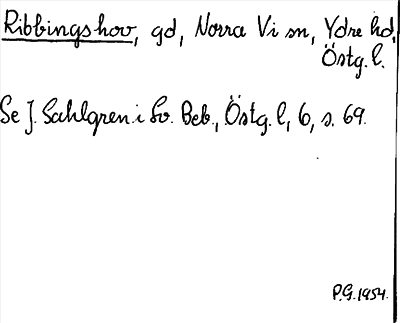 Ribbingshov, gd, Norra Vi sn, Ydre hd,
Östg. l.
Se J. Sahlgren i Sv. Beb., Östg. l, 6, s. 69.
P.G. 1954.